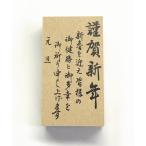 謹賀新年
新春を迎え皆様の
御健康と御多幸を
御祈り申し上げます
元旦